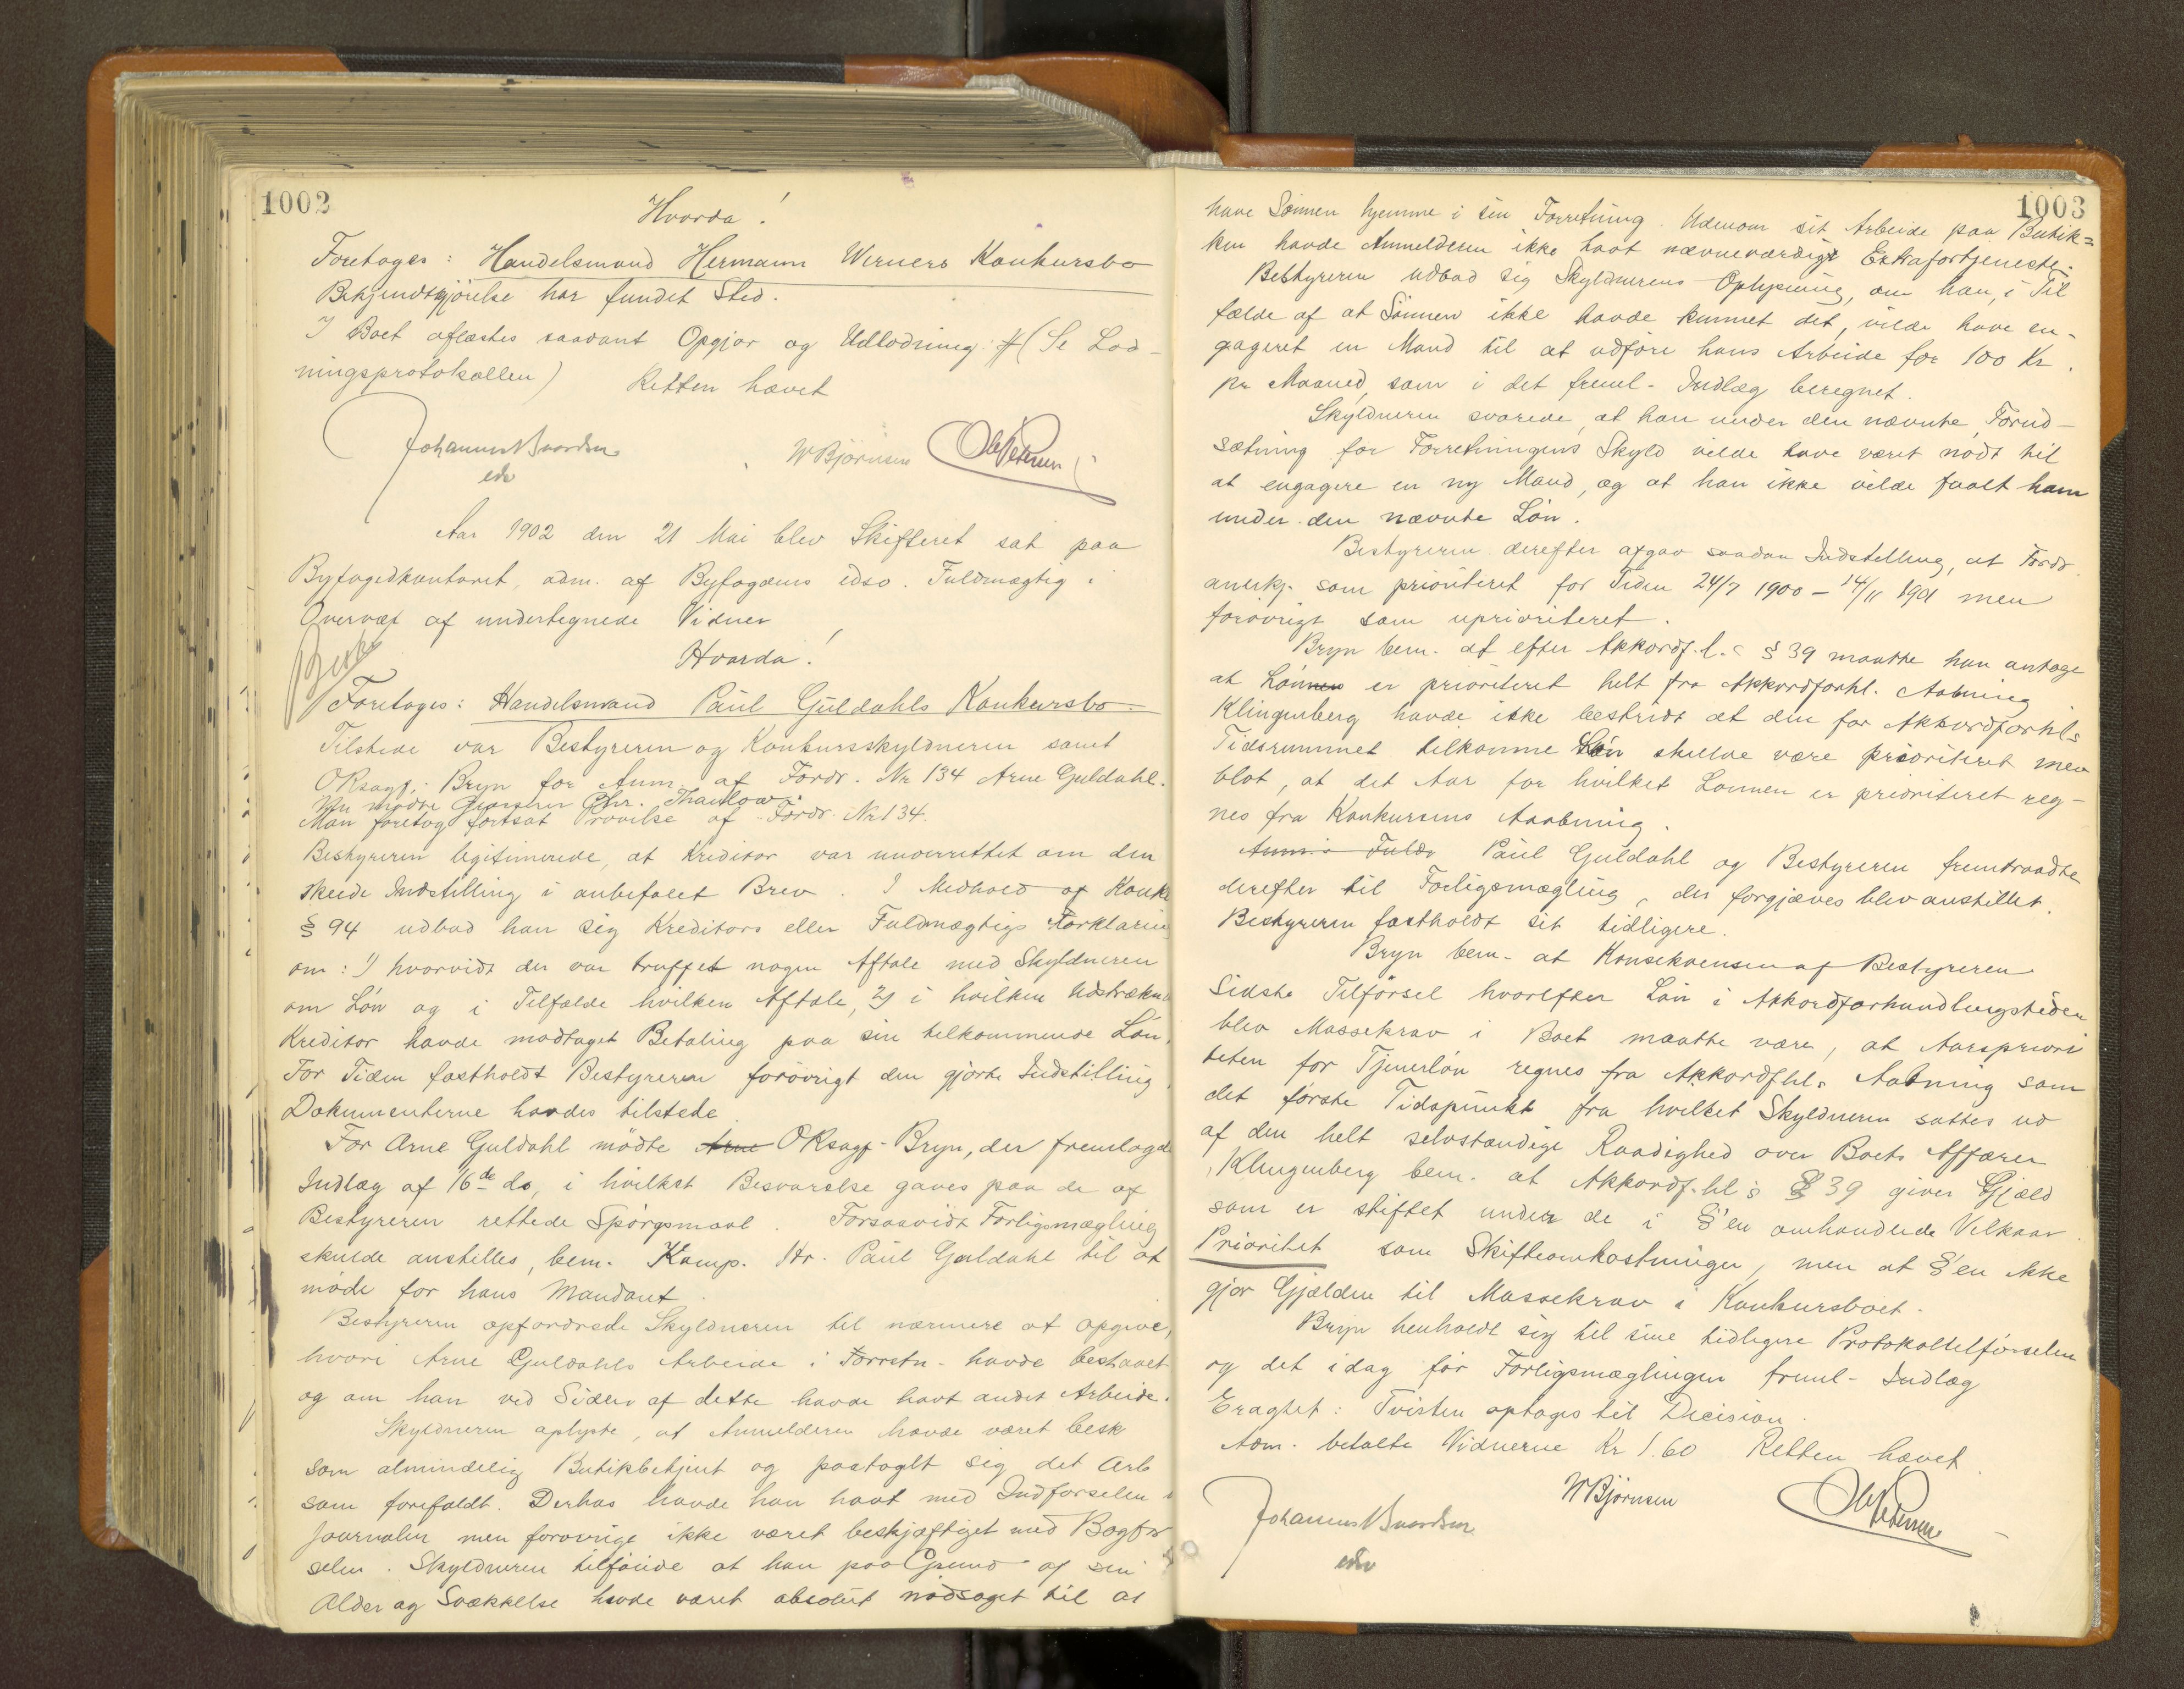 1002
Hvorda!
Foretoges: Handelsmand Hermann Werners Konkursbo
Bekjendtgjörelse har fundet Sted.
I Boet oflæstes saadant Opgjør og Udlodning # (Se Lod-
ningsprotokollen) Retten hævet
Johannes
eds WBjörnsen Ole Petersen
Aar 1902 den 21 Mai blev Skifteret sat paa
Byfogedkontoret, adm. af Byfogdens edsv. Fuldmægtig i
Overvær af undertegnede Vidner
Hvorda!
Foretoges: Handelsmand Paul Guldahls Konkursbo
Tilstede var Bestyreren og Konkursskyldneren samt
ORsagf. Bryn for Anm. af Fordr. Nr 134 Arne Guldahl.
Chr. Thaulow
Man foretog fortsat Prövelse af Fordr. Nr 134.
Bestyreren legitimerede, at Kreditor var underrettet om den
skeede Indstilling i anbefalet Brev. I Medhold af Konk
§ 94 udbad han sig Kreditors eller Fuldmægtigs Forklaring
om: 1) hvorvidt der var truffet nogen Aftale med Skyldneren
om Lön og i Tilfælde hvilken Aftale, 2) i hvilken Udstrækn
Kreditor havde modtaget Betaling paa sin tilkommende Lön.
For Tiden fastholdt Bestyreren forövrigt den gjorte Indstilling.
Dokumenterne havdes tilstede
For Arne Guldahl mödte Arne ORsagf. Bryn, der fremlagde
Indlæg af 16de ds, i hvilket Besvarelse gaves paa de af
Bestyreren rettede Spörgsmaal. Forsaavidt Forligsmægling
skulde anstilles, bem. Komp. Hr. Paul Guldahl til at
möde for hans Mandant.
Bestyreren opfordrede Skyldneren til nærmere at opgive,
hvori Arne Guldahls Arbeide i Forretn. havde bestaaet
og om han ved Siden af dette havde havt andet Arbeide.
Skyldneren oplyste, at Anmelderen havde været besk
som almindelig Butikbetjent og paataget sig det Arb
som forefaldt. Derhos havde han havt med Indförselen i
Journalen men forövrigt ikke været beskjæftiget med Bogför
selen. Skyldneren tilföiede at han paa Grund af sin
Alder og Svækkelse havde været absolut nödsaget til at
1003
have Sönnen hjemme i sin Forretning. Udenom sit Arbeide paa Butik=
ken havde Anmelderen ikke havt nævneværdigt Extrafortjeneste.
Bestyreren udbad sig Skyldnerens Oplysning, om han, i Til
fælde af at Sönnen ikke havde kunnet det, vilde have en-
gageret en Mand til at udföre hans Arbeide for 100 Kr
pr Maaned, som i det freml. Indlæg beregnet.
Skyldneren svarede, at han under den nævnte Forud-
sætning for Forretningens Skyld vilde have været nödt til
at engagere en ny Mand, og at han ikke vilde faaet ham
under den nævnte Lön.
Bestyreren derefter afgav saadan Indstilling, at Fordr.
anerkj. som prioriteret for Tiden 24/7 1900 - 14/11 1901 men
forövrigt som uprioriteret.
Bryn bem. at efter Akkordf.l.s § 39 maatte han antage
at Lönnen er prioriteret helt fra Akkordforhl. Aabning
Klingenberg havde ikke bestridt at den for Akkordforhls
Tidsrummet tilkomne Lön skulde være prioriteret men
blot, at det Aar for hvilket Lönnen er prioriteret reg-
nes fra Konkursens Aabning.
Anm.s Fuldm Paul Guldahl og Bestyreren fremtraadte
derefter til Forligsmægling, der forgjæves blev anstillet.
Bestyreren fastholdt sit tidligere.
Bryn bem. at Konsekvensen af Bestyreren
Sidste Tilförsel hvorefter Lön i Akkordforhandlingstiden
blev Massekrav i Boet maatte være, at Aarspriori
teten for Tjenerlön regnes fra Akkordfhl. Aabning som
det förste Tidspunkt fra hvilket Skyldneren sattes ud
af den helt selvstændige Raadighed over Boets Affærer
Klingenberg bem. at Akkordf.hl.s § 39 giver Gjæld
som er stiftet under de i §'en omhandlede Vilkaar
Prioritet som Skifteomkostninger, men at §'en ikke
gjør Gjælden til Massekrav i Konkursboet.
Bryn henholdt sig til sine tidligere Protokoltilförselen
og det idag før Forligsmæglingen freml. Indlæg
Eragtet: Tvisten optages til Decision.
Adm. betalte Vidnerne Kr 1.60 Retten hævet.
Johannes WBjörnsen Ole Petersen
edsv